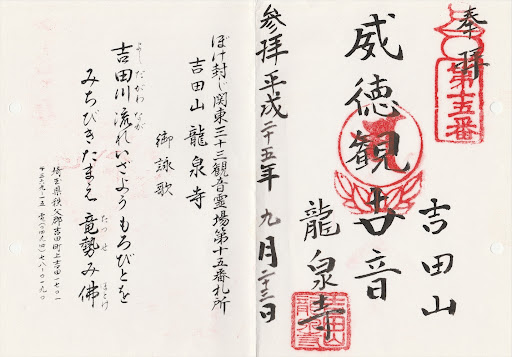 奉拝
第十五番
吉田山
威徳観世音
龍泉寺
参拝 平成二十五年 九月二十三日
ぼけ封じ関東三十三観音霊場第十五番札所
吉田山 龍泉寺
御詠歌
よしだがわ なが
吉田川 流れいざよう もろびとを
たつせ ほとけ
みちびきたまえ 竜勢み佛
埼玉県秩父郡吉田町上吉田一七〇一